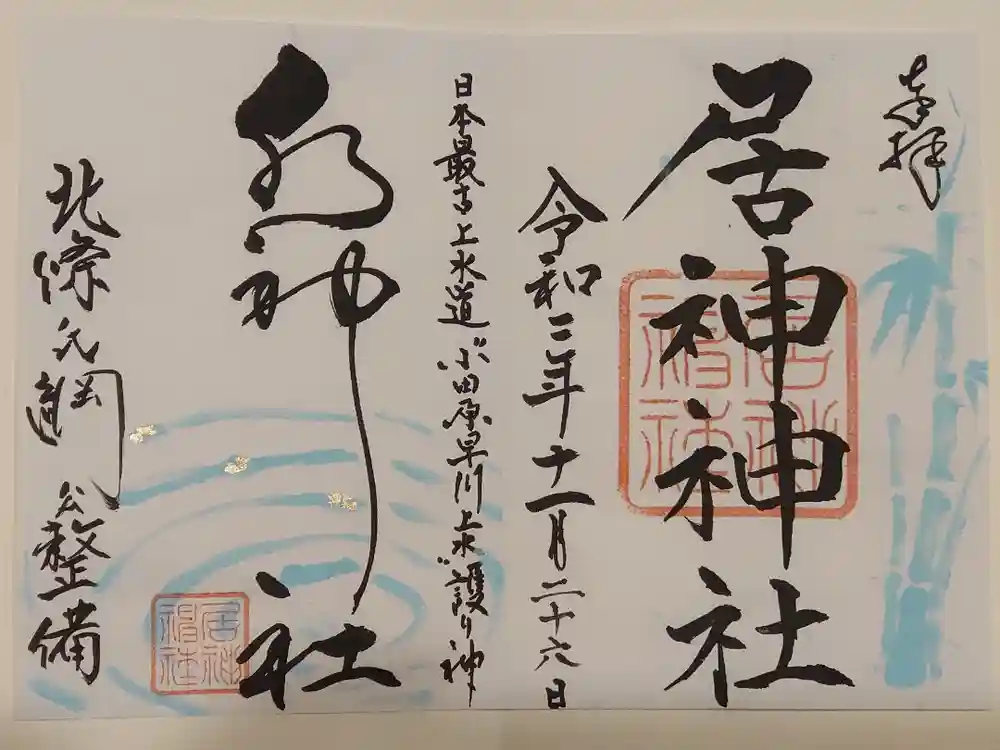 奉拝
居神神社
令和三年十一月二十六日
日本最古上水道"小田原早川上水"護り神
水神社
北條氏綱公整備
居神神社
居神神社